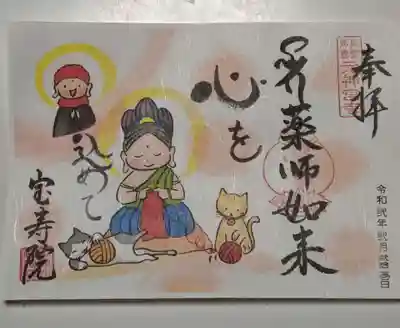 奉拝
薬師如来
心を
込めて
宝寿院
令和弐年 弐月